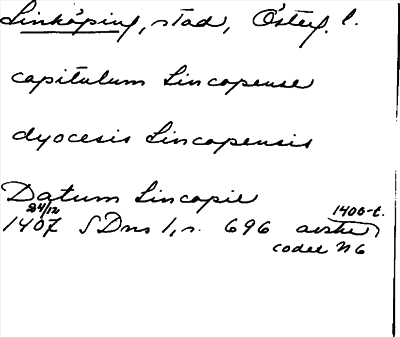 Linköping, stad, Österg. l.
capitulum Lincopense
dyocesis Lincopensis
Datum Lincopie
24/12 1400-t.
1407 SDns 1, s. 696 avskr
codex N6